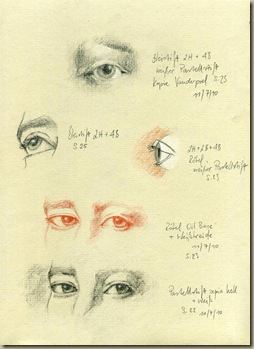 Bleistift 2H + 4B
weißer Pastellstift
Kopie Vanderpoel S.23
11/7/10
Bleistift 2H + 4B
S.25
2H + 2B + 4B
Rötel
weißer Pastellstift
S.23
Rötel Oil Base
+ Weißkreide
11/7/10
S.23
Pastellstift sepia hell
+ Weiß
S.22 10/7/10